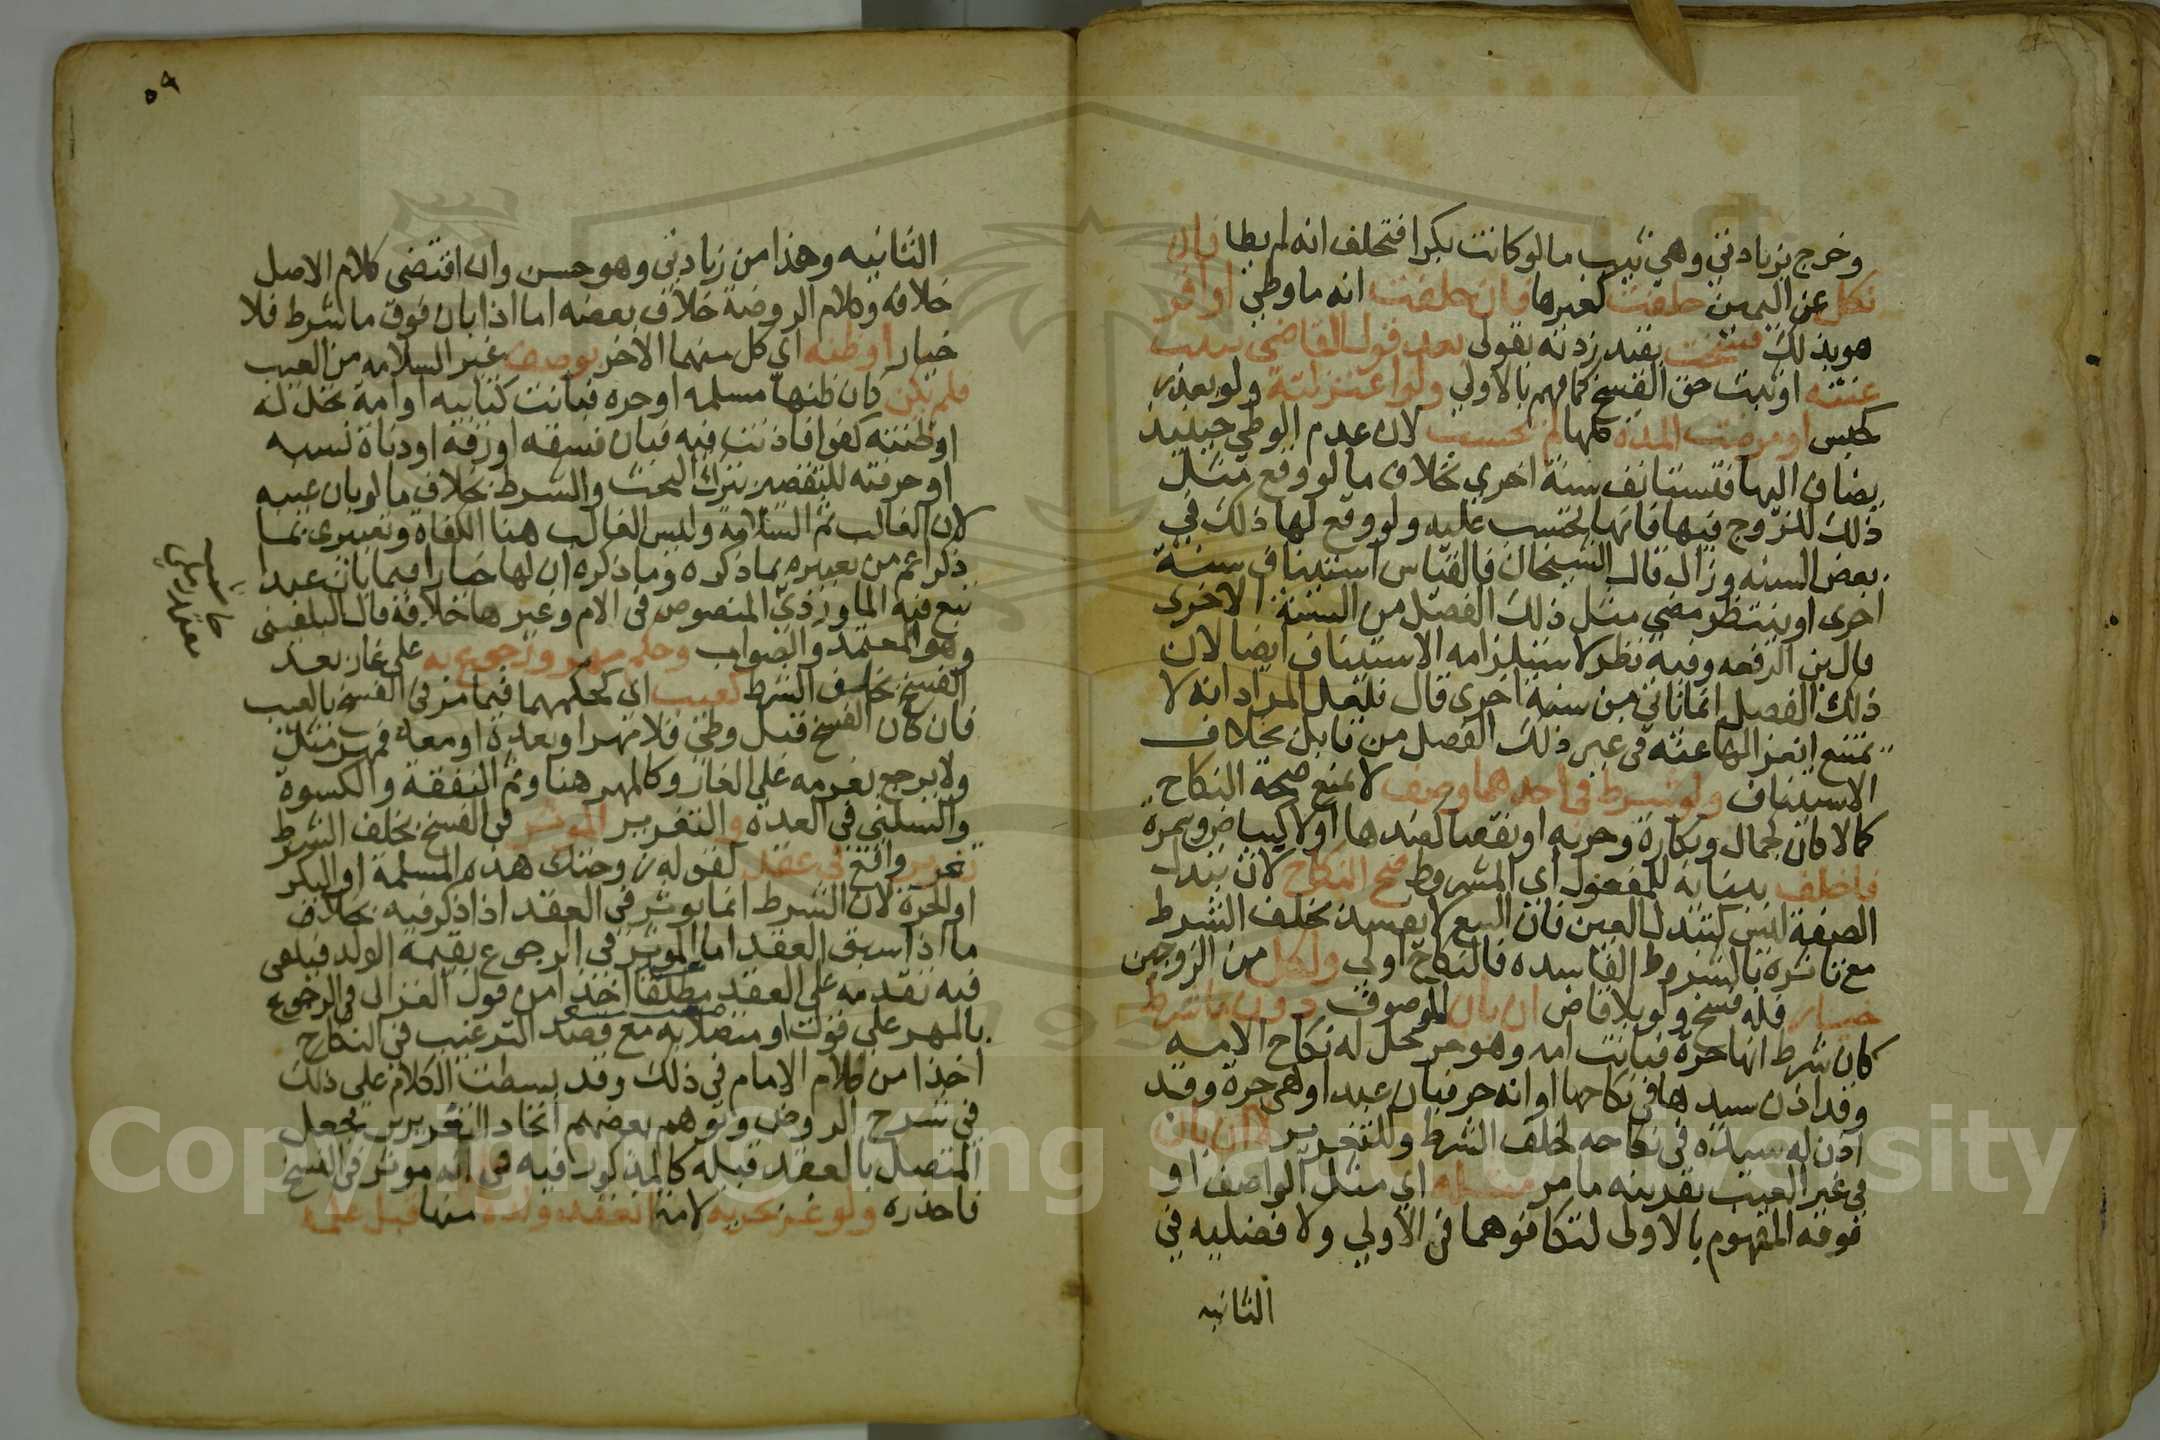 وخرج بزيادتي وهي ثيب ما لو كانت بكرا فتحلف انه لم يطا فان
نكل عن اليمين حلفت كغيرها فان حلفت انه ما وطي او اقر
هو بذلك فسخت بقيد زدته بقولي بعد قول القاضي ثبتت
عنته او ثبت حق الفسخ كما فهم بالاولي ولو اعتزلته ولو بعذر
كحبس او مرضت المدة كلها لم تحسب لان عدم الوطي حينيذ
يضاف اليها فتستانف سنة اخري بخلاف ما لو وقع مثل
ذلك للزوج فيها فانها تحسب عليه ولو وقع لها ذلك في
بعض السنه وزال قال الشيخان فالقياس استيناف سنة
اخرى او ينتظر مضي مثل ذلك الفصل من السنة الاخرى
قال بن الرفعه وفيه نظر لاستلزامه الاستيناف ايضا لان
ذلك الفصل انما ياتي من سنة اخرى قال فلعل المراد انه لا
يمتنع انعزالها عنه في غير ذلك الفصل من قابل بخلاف
الاستيناف ولو شرط في احدهما وصف لا يمنع صحة النكاح
كمالا كان كجمال وبكارة وحريه او نقصا كضدها او لا كبياض وسمرة
فاخلف ببنايه للمفعول اي المشروط صح النكاح لان تبدل
الصفة ليس كتبدل العين فان البيع لا يفسد بخلف الشرط
مع تاثره بالشروط الفاسده فالنكاح اولي ولكل من الزوجين
خيار فله فسخ ولو بلا قاض ان بان الموصوف دون ما شرط
كان شرط انها حرة فبانت امه وهو حر يحل له نكاح الامه
وقد اذن سيدها في نكاحها او انه حر فبان عبدا وهي حرة وقد
اذن له سيده في نكاحه لخلف الشرط وللتغرير لا ان بان
في غير العيب بقرينه ما مر مثله اي مثل الواصف او
فوقه المفهوم بالاولى لتكافوهما في الاولي ولا فضليه في
الثانيه
٥٩
الثانيه وهذا من زيادتي وهو حسن وان اقتضى كلام الاصل
خلافه وكلام الروضة خلاف بعضه اما اذا بان فوق ما شرط فلا
خيار او ظنه اي كل منهما الاخر بوصف غير السلامه من العيب
فلم يكن كان ظنها مسلمه او حرة فبانت كتابيه او امة تحل له
او ظنته كفوا فاذنت فيه فبان فسقه او رقه او دناة نسبه
او حرفته للتقصير بترك البحث والشرط بخلاف ما لو بان عيبه
لان الغالب ثم السلامة وليس الغالب هنا الكفاة وتعبيري بما
ذكر اعم من تعبيره بما ذكره وما ذكره ان لها خيارا فيما بان عبدا
تبع فيه الماوردي المنصوص في الام وغيرها خلافه قال البلقيني
وهو المعتمد والصواب وحكم مهر ورجوع به على غار بعد
الفسخ بخلف الشرط كعيب اي كحكمهما فيما مر في الفسخ بالعيب
فان كان الفسخ قبل وطي فلا مهر او بعده او معه فمهر مثل
ولا يرجع بغرمه علي الغار وكالمهر هنا وثم النفقة والكسوة
والسكني في العدة والتغرير الموثر في الفسخ بخلف الشرط
تغرير واقع في عقد كقوله زوجتك هذه المسلمة او البكر
او الحرة لان الشرط انما يوثر في العقد اذا ذكر فيه بخلاف
ما اذا سبق العقد اما الموثر في الرجوع بقيمة الولد فيكفي
فيه تقدمه علي العقد مطلقا اخذا من قول الغزالي في الرجوع
بالمهر علي قول او متصلا به مع قصد الترغيب في النكاح
اخذا من كلام الامام في ذلك وقد بسطت الكلام علي ذلك
في شرح الروض وتوهم بعضهم اتحاد التغريرين فجعل
المتصل بالعقد قبله كالمذكور فيه في انه موثر في الفسخ
فاحذره ولو غر بحريه لامة انعقد ولده منها قبل علمه
Copyright © King Saud University